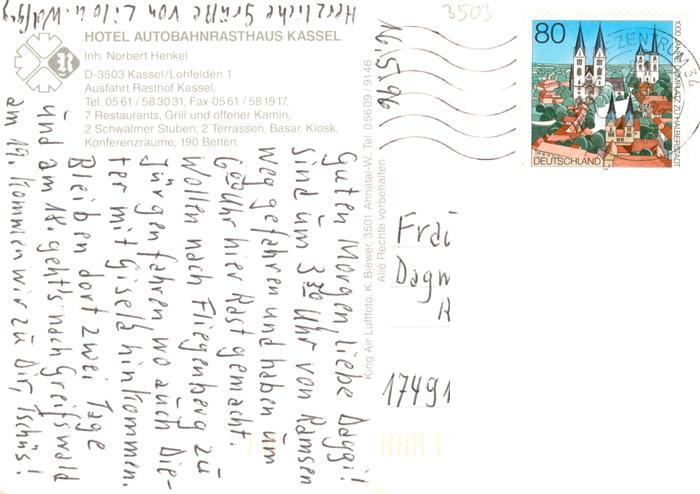 HOTEL AUTOBAHNRASTHAUS KASSEL
Inh. Norbert Henkel
D-3503 Kassel/Lohfelden 1
Ausfahrt Rasthof Kassel,
Tel. 05 61 / 58 30 31, Fax 05 61 / 58 19 17,
7 Restaurants, Grill und offener Kamin,
2 Schwälmer Stuben, 2 Terrassen, Basar, Kiosk,
Konferenzräume, 190 Betten.
Guten Morgen liebe Daggi!
Sind um 3 30 Uhr von Ramsen
weggefahren und haben um
Uhr hier Rast gemacht.
Wollen nach Fliegenberg zu
Jürgen fahren wo auch Die-
ter mit Gisela hinkommen.
Bleiben dort zwei Tage
und am 18. geht's nach Greifswald
am 19. kommen wir zu Dir, Tschüs!
Herzliche Grüße von Lilo u. Wolfg
King Air Luftfoto, K. Biewer, 3501 Ahnatal-W. Tel. 0 56 09 / 91 46
Alle Rechte vorbehalten
3503
16.5.96
80
DEUTSCHLAND
1000 JAHRE DOMPLATZ ZU HALBERSTADT
ZENTRUM 34
Frau
Dagm
R
17491